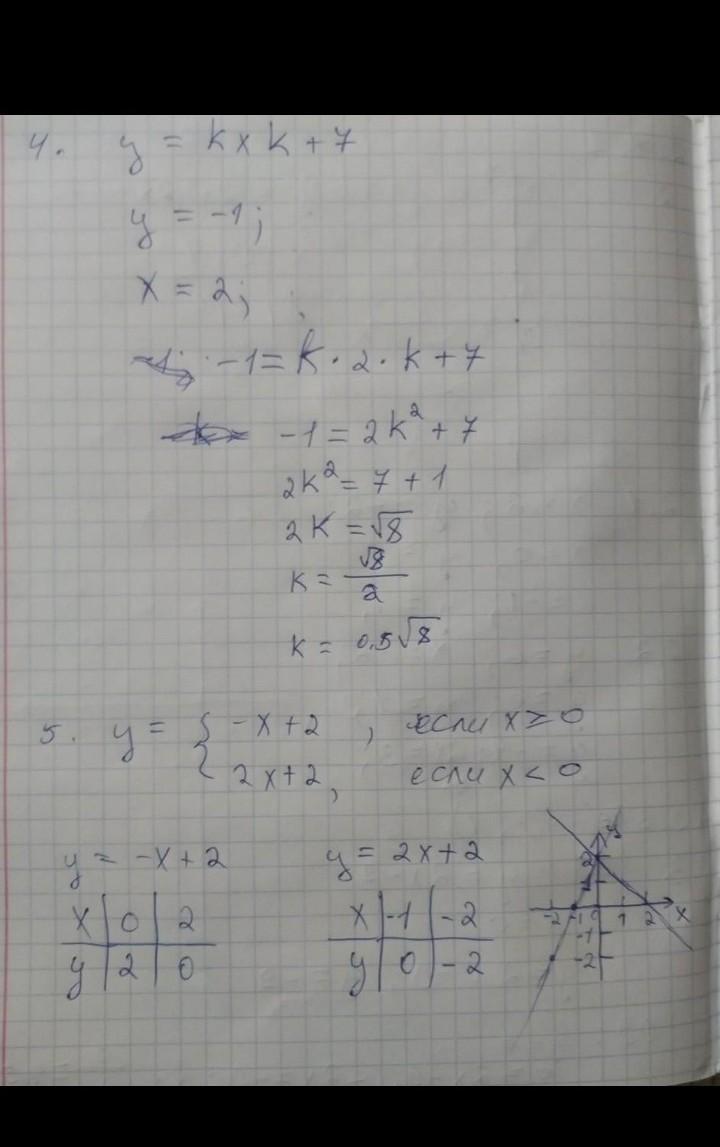 4. y = k x k + 7
y = -1;
x = 2;
-1 = k · 2 · k + 7
-1 = 2k² + 7
2k² = 7 + 1
2k = √8
k = √8/2
k = 0,5√8
5. y = { -x + 2 , если x ≥ 0
2x + 2, если x < 0
y = -x + 2 y = 2x + 2
x | 0 | 2 x | -1 | -2
y | 2 | 0 y | 0 | -2
y
2
1
-2 -1 0 1 2 x
-1
-2